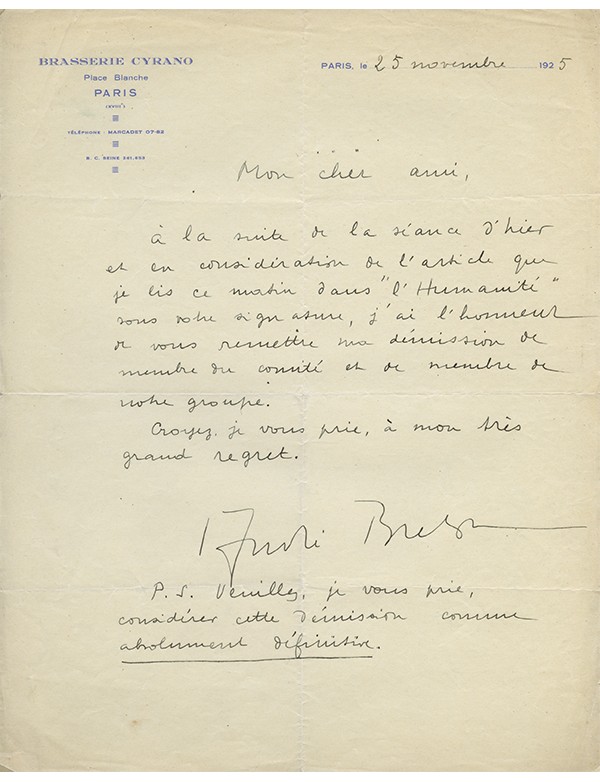 BRASSERIE CYRANO
Place Blanche
PARIS
(XVIIIᵉ)
TÉLÉPHONE - MARCADET 07-82
R. C. SEINE 241.602
PARIS, le 25 novembre 1925
Mon cher ami,
à la suite de la séance d'hier
et en considération de l'article que
je lis ce matin dans "l'Humanité"
sous votre signature, j'ai l'honneur
de vous remettre ma démission de
membre du comité et de membre de
notre groupe.
Croyez, je vous prie, à mon très
grand regret.
André Breton
P. S. Veuillez, je vous prie,
considérer cette démission comme
absolument définitive.